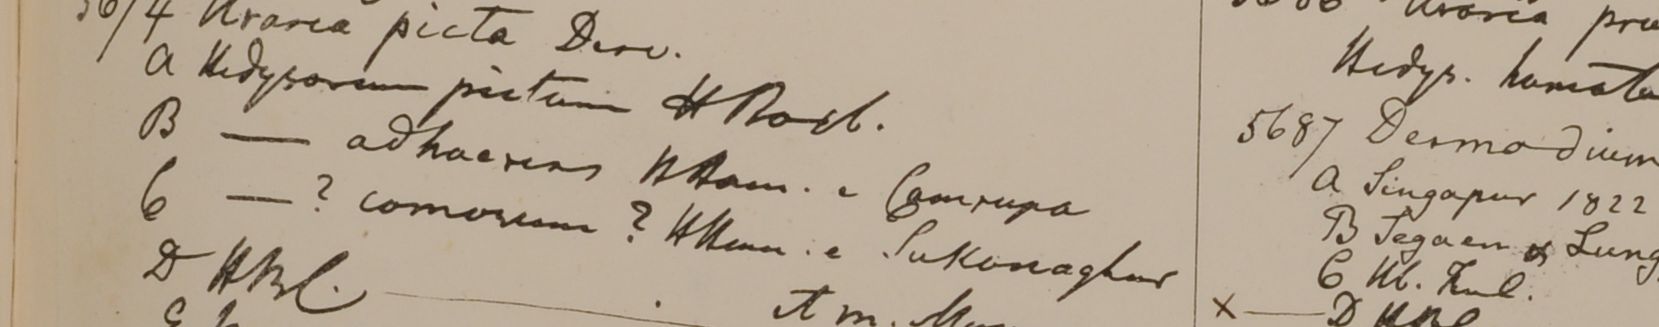 5674 Uraria picta Desv.
A Hedysarum pictum H Roxb.
B — adhaerens H Ham. e Camrupa
C — ? comosum ? H Ham. e Sukanaghur
D HBC.
Uraria
Hedys. hamatu
5687 Desmodium
A Singapur 1822
B Segaen & Lung
C Hb.
× — D HBC